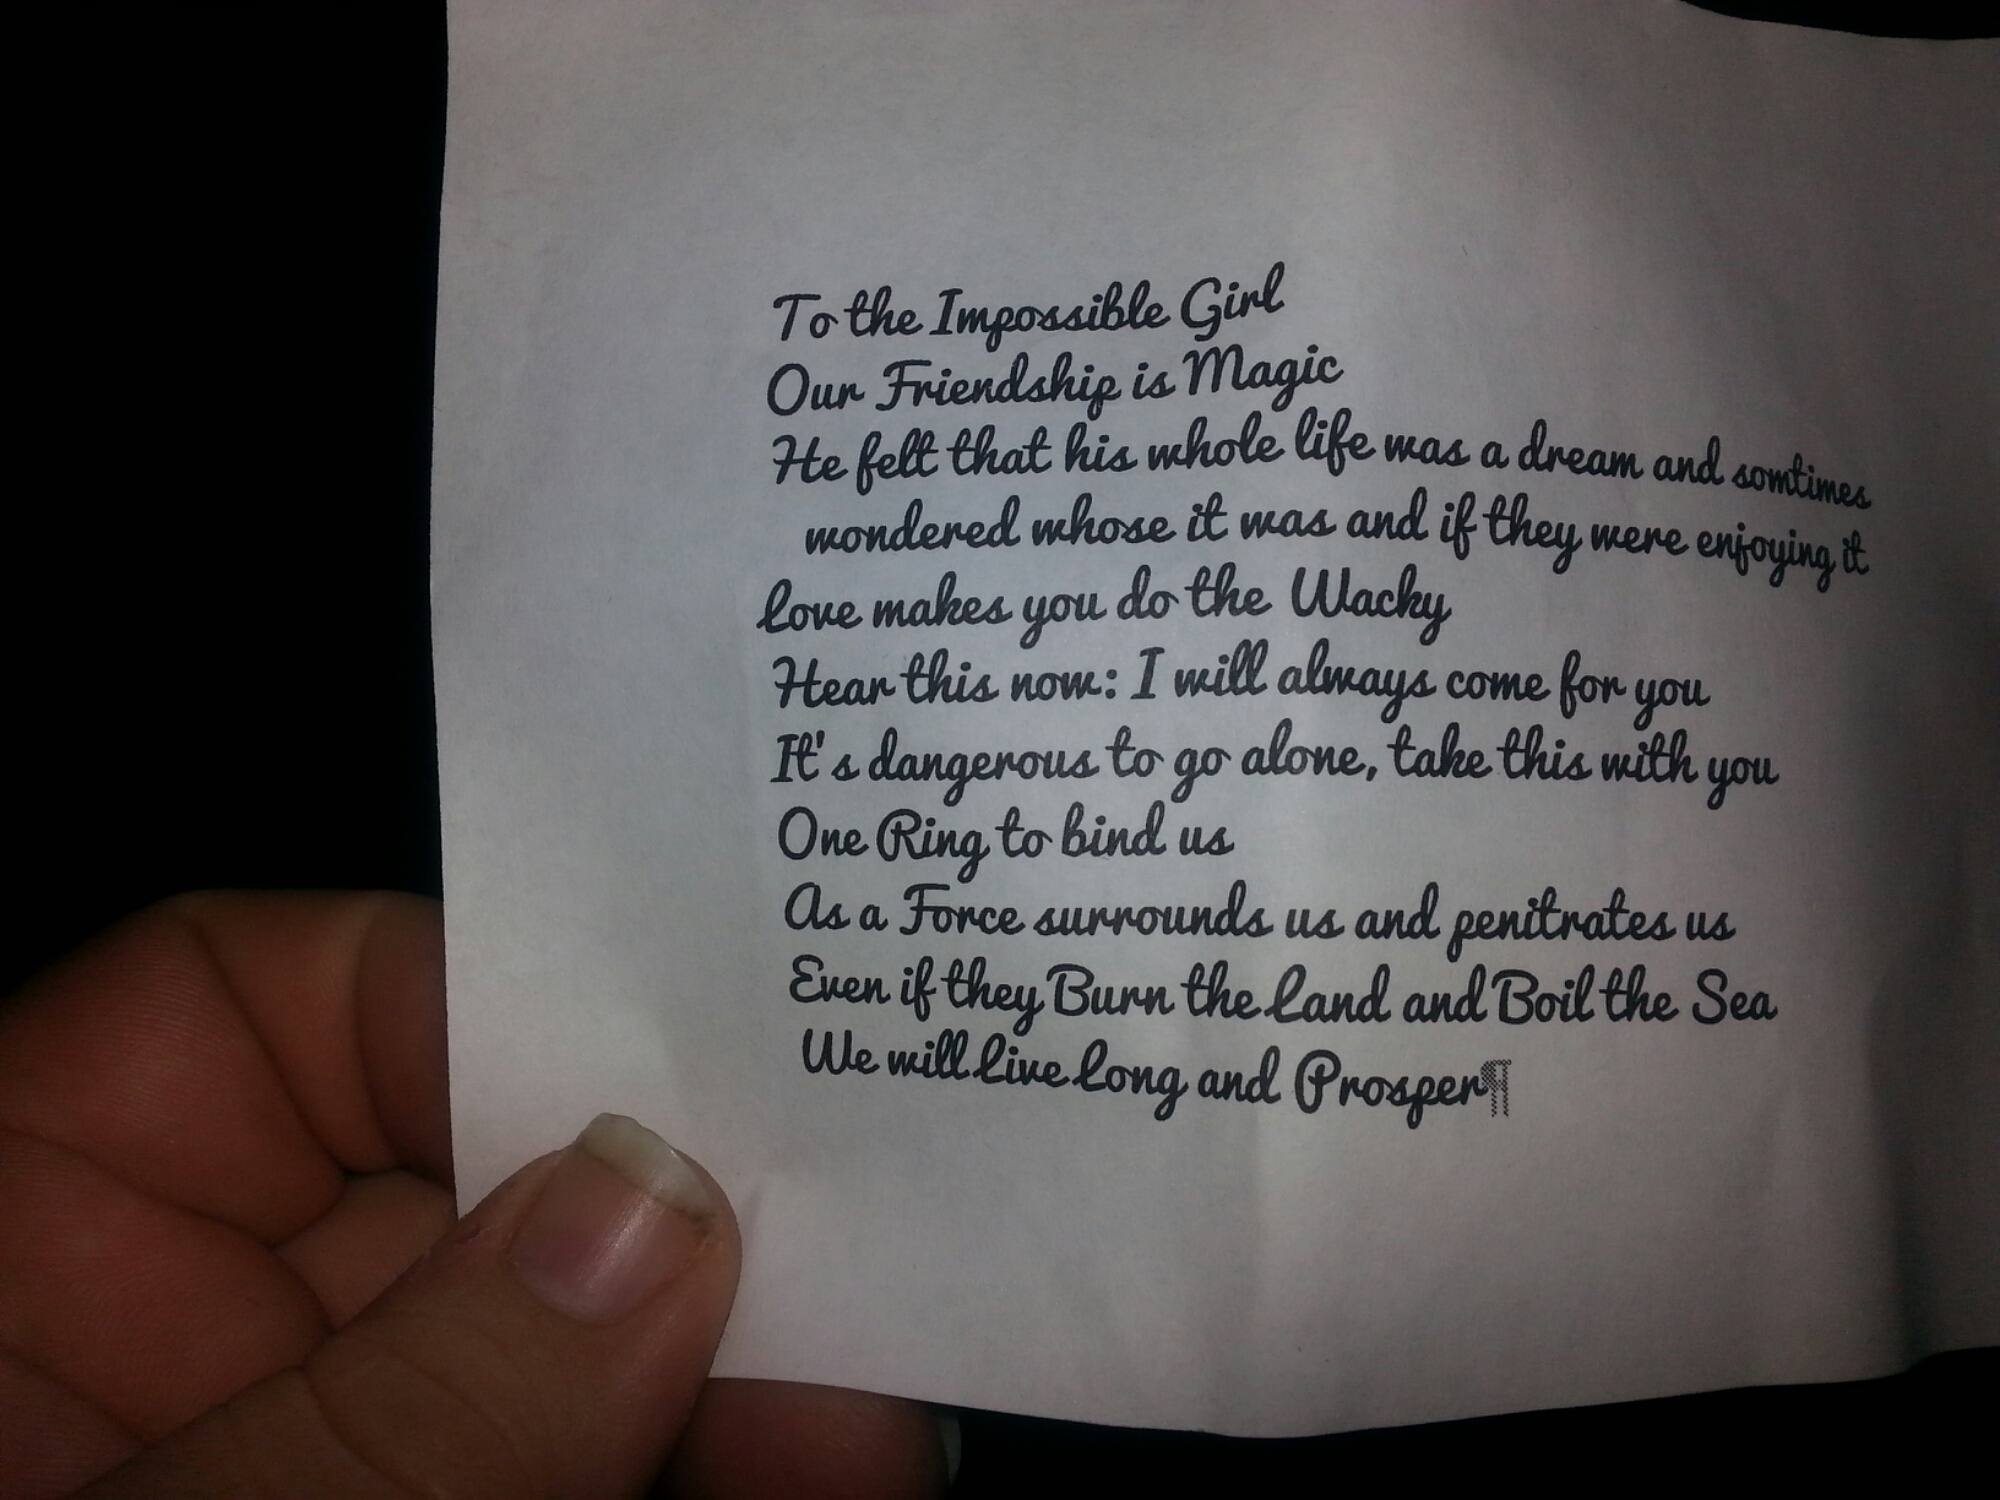 To the Impossible Girl
Our Friendship is Magic
He felt that his whole life was a dream and somtimes
wondered whose it was and if they were enjoying it
Love makes you do the Wacky
Hear this now: I will always come for you
It's dangerous to go alone, take this with you
One Ring to bind us
As a Force surrounds us and penitrates us
Even if they Burn the Land and Boil the Sea
We will Live Long and Prosper¶